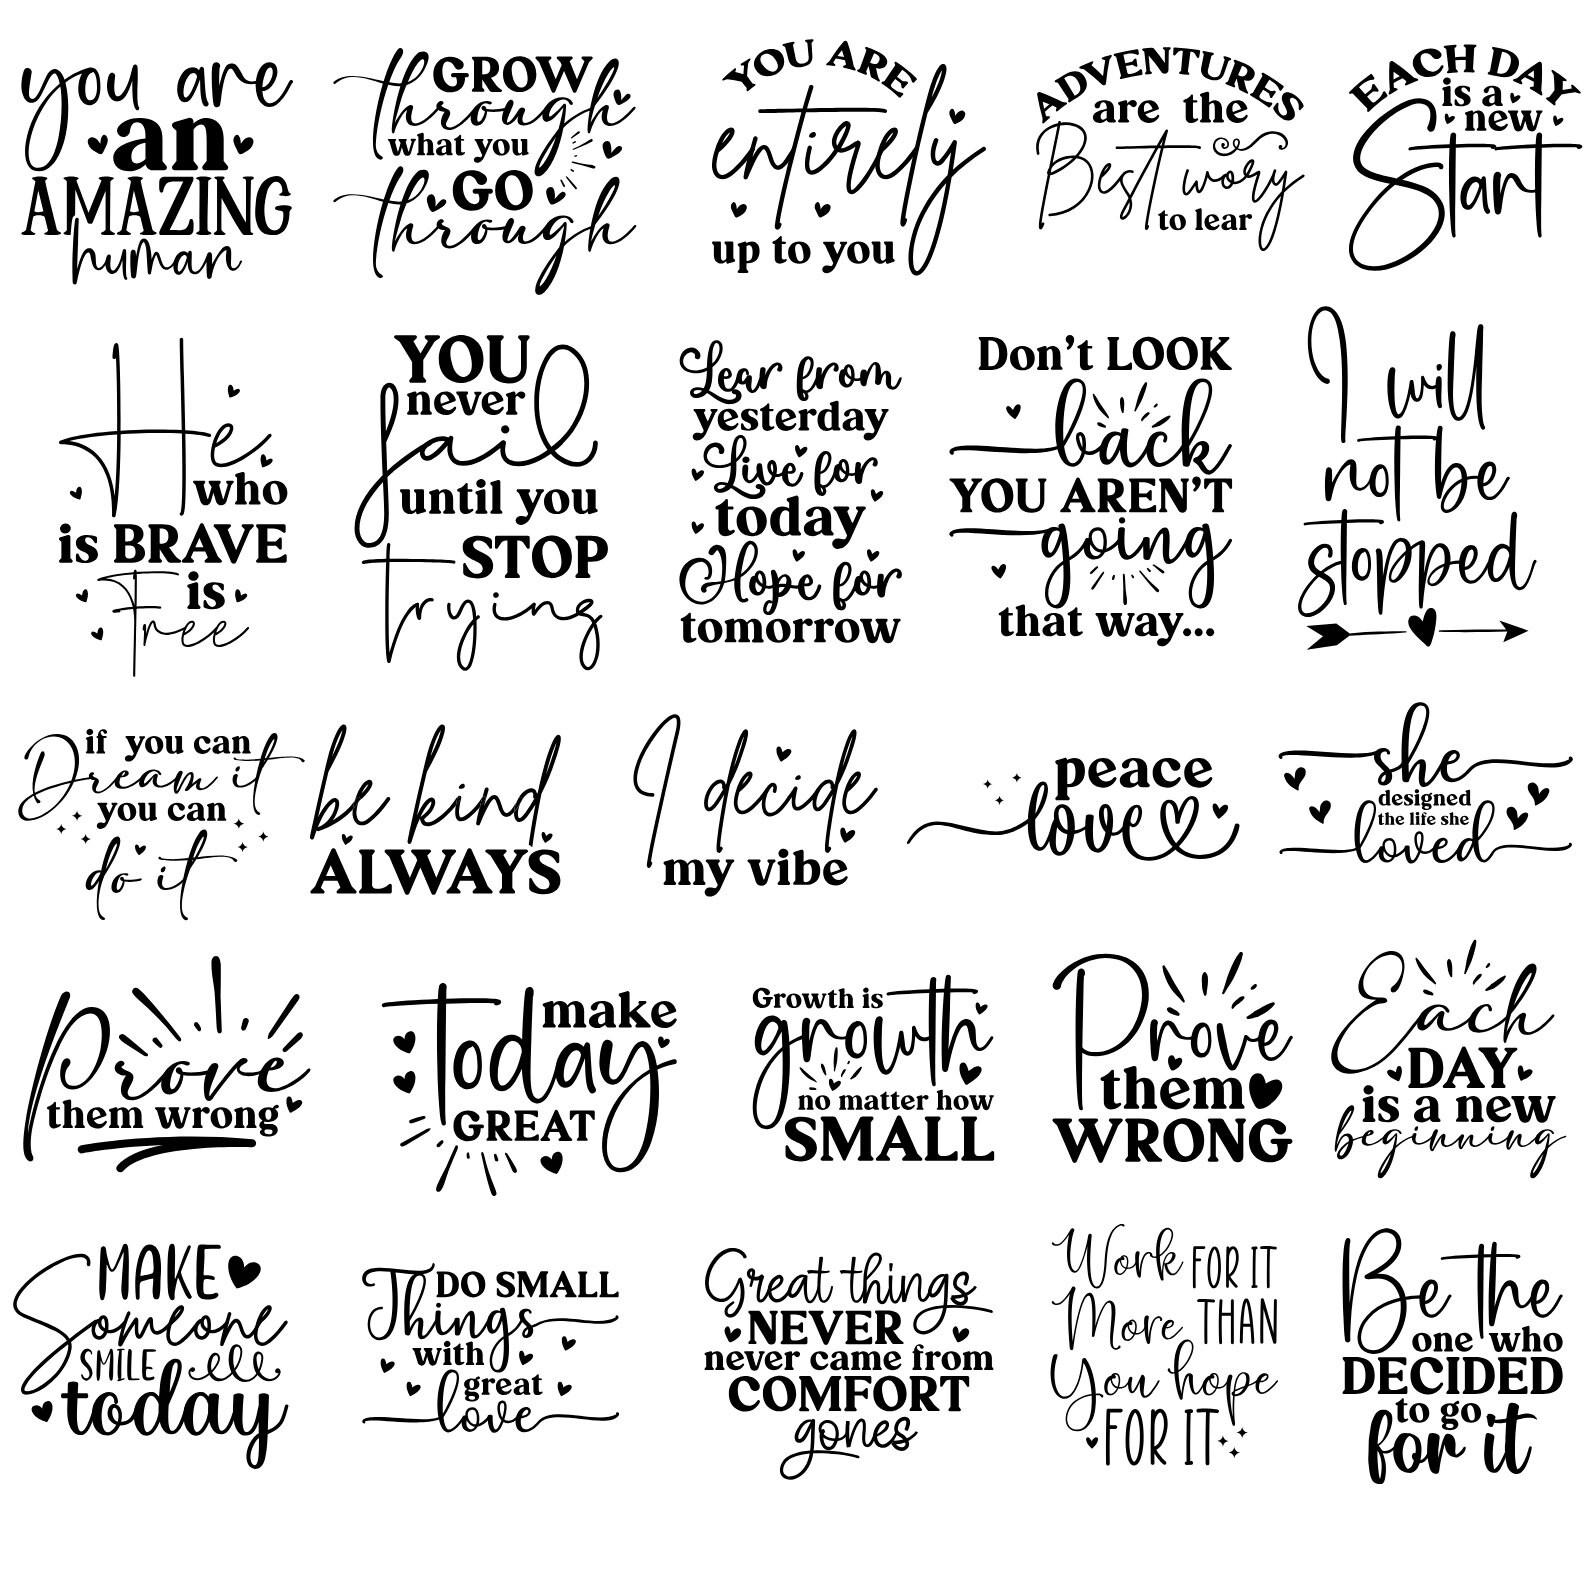 you are
an
AMAZING
human
GROW
through
what you
GO
through
YOU ARE
entirely
up to you
ADVENTURES
are the
Best wory
to lear
EACH DAY
is a
new
Start
He
who
is BRAVE
is
Free
YOU
never
fail
until you
STOP
trying
Lear from
yesterday
Live for
today
Hope for
tomorrow
Don't LOOK
back
YOU AREN'T
going
that way...
I will
not be
stopped
if you can
Dream it
you can
do it
be kind
ALWAYS
I decide
my vibe
peace
love
she
designed
the life she
loved
Prove
them wrong
make
Today
GREAT
Growth is
growth
no matter how
SMALL
Prove
them
WRONG
Each
DAY
is a new
beginning
MAKE
Someone
SMILE
today
DO SMALL
Things
with
great
love
Great things
NEVER
never came from
COMFORT
gones
Work FOR IT
More THAN
You hope
FOR IT
Be the
one who
DECIDED
to go
for it